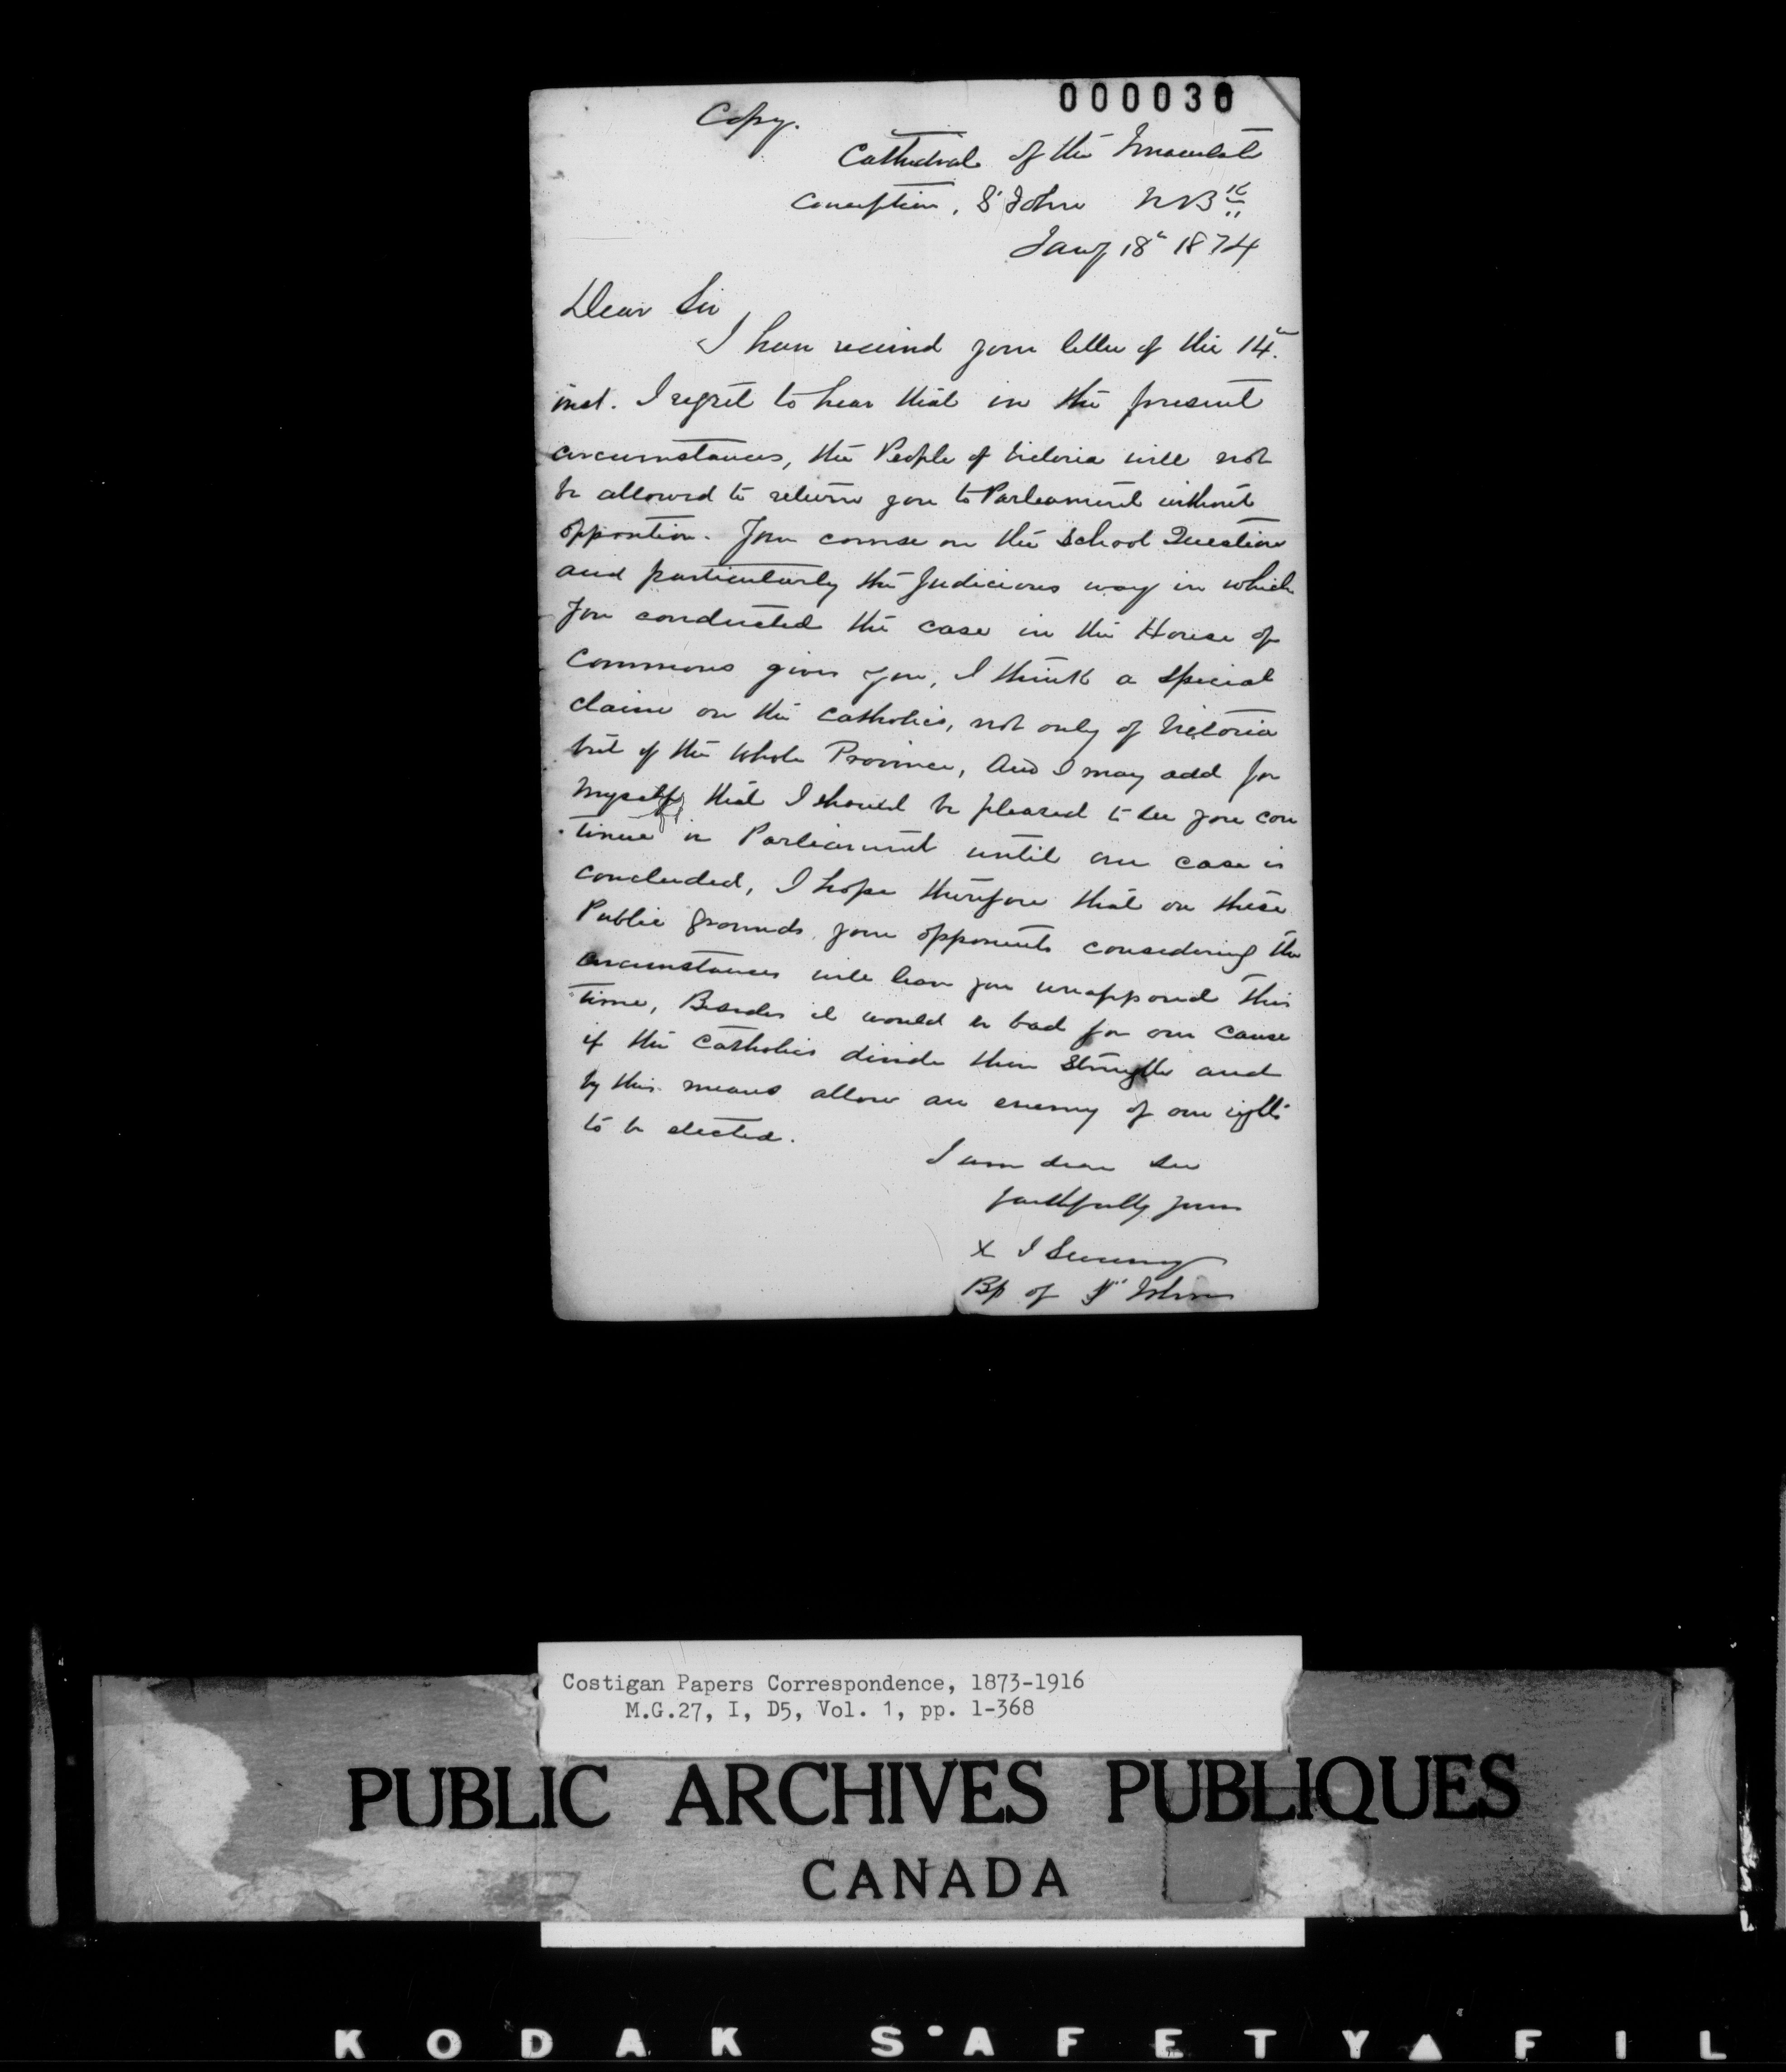 000030
Copy.
Cathedral of the Immaculate
Conception, St John N B
Jany 18th 1874
Dear Sir
I have received your letter of the 14th
inst. I regret to hear that in the present
circumstances, the People of Victoria will not
be allowed to return you to Parliament without
opposition. Your course on the School Question
and particularly the Judicious way in which
you conducted the case in the House of
Commons gives you, I think a special
claim on the Catholics, not only of Victoria
but of the whole Province, And I may add for
myself that I should be pleased to see you con
tinue in Parliament until our case is
concluded, I hope therefore that on these
Public grounds your opponents considering the
circumstances will leave you unopposed this
time, Besides it would be bad for our cause
if the Catholics divide their strength and
by this means allow an enemy of our rights
to be elected.
I am dear Sir
faithfully yours
x J Sweeny
Bp of St John
Costigan Papers Correspondence, 1873-1916
M.G.27, I, D5, Vol. 1, pp. 1-368
PUBLIC ARCHIVES PUBLIQUES
CANADA
KODAK SAFETY FIL